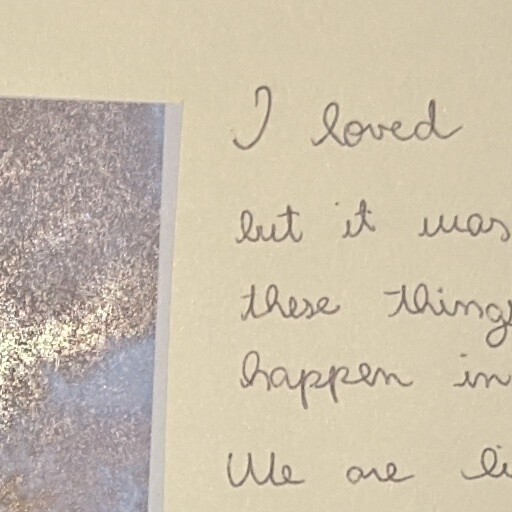 I loved
but it was
these things
happen in
We are li